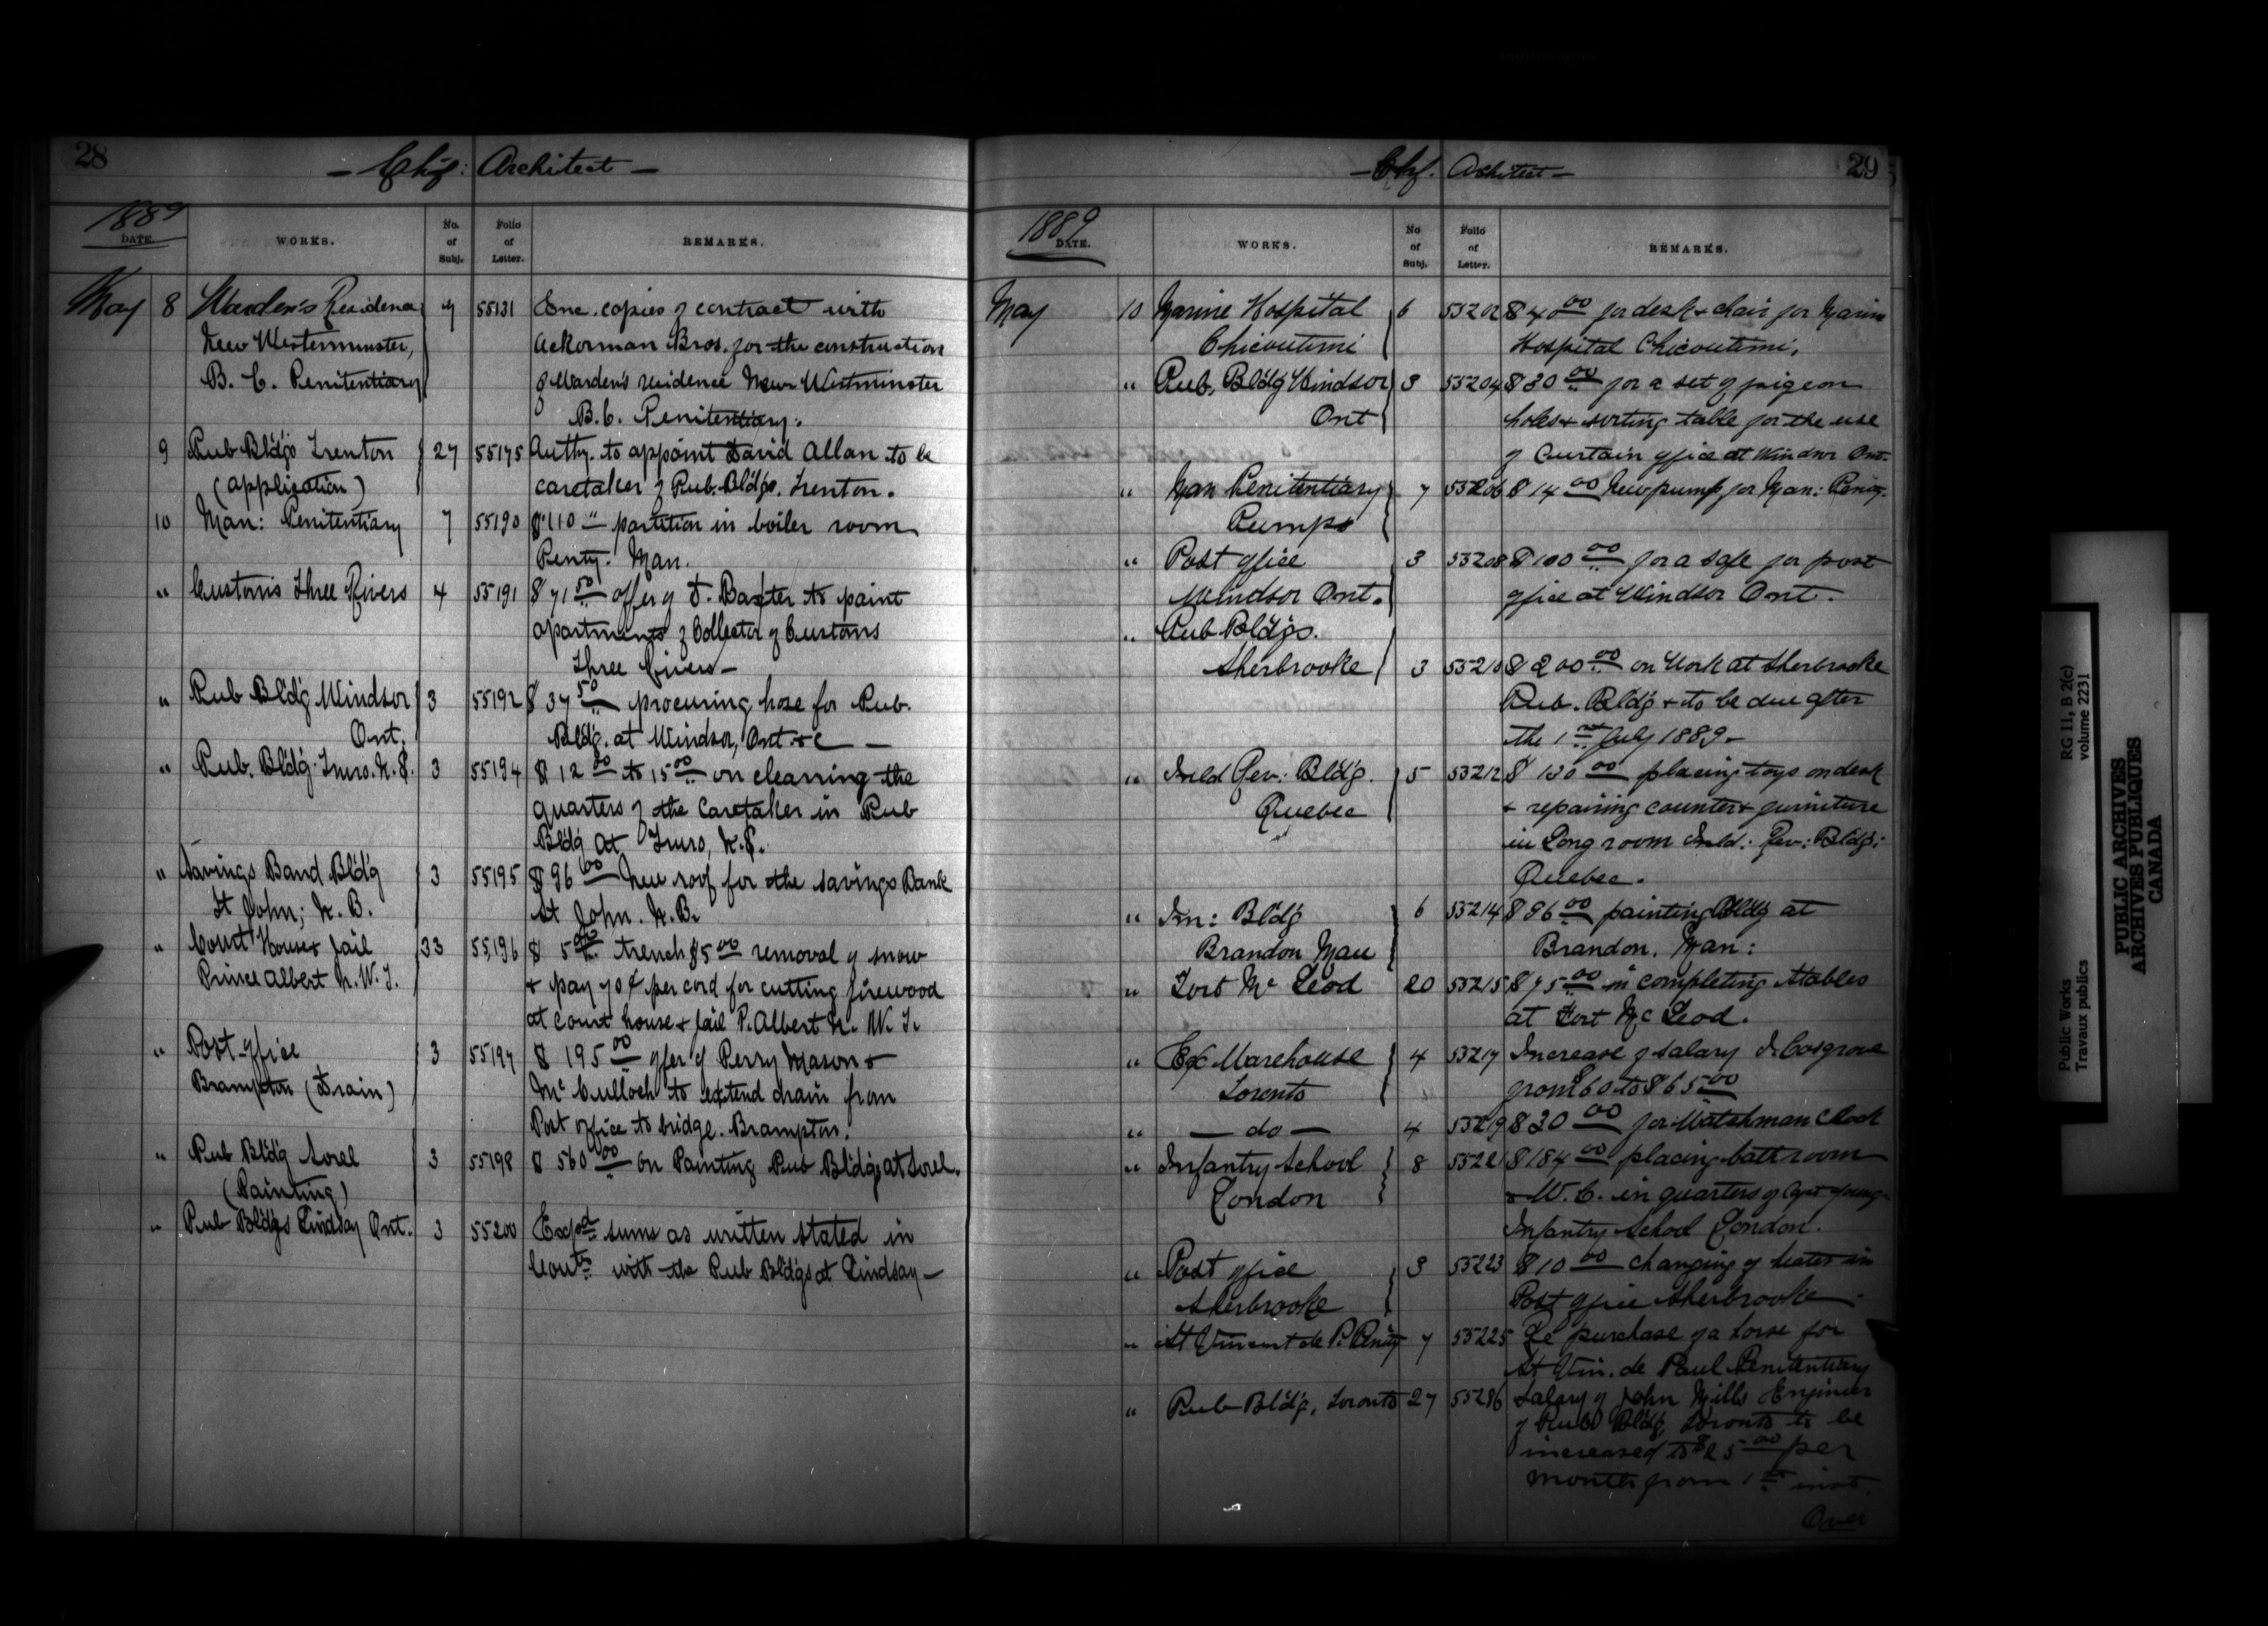 28
- Chf: Architect -
1889
DATE. WORKS. No. of Subj. Folio of Letter. REMARKS.
May 8 Warden's Residence 7 55131 Enc. copies of contract with
New Westerminster, Ackerman Bros. for the construction
B. C. Penitentiary of Warden's residence New Westminster
B. C. Penitentiary.
9 Pub Bldgs Trenton 27 55175 Authy. to appoint David Allan to be
(application) caretaker of Pub. Bldgs. Trenton.
10 Man: Penitentiary 7 55190 $110 " partition in boiler room
Penty. Man.
" Customs Three Rivers 4 55191 $71 50 offer of F. Baxter to paint
apartments of Collector of Customs
Three Rivers -
" Pub Bldg Windsor 3 55192 $37 50 procuring hose for Pub.
Ont. Bldg. at Windsor, Ont. &c -
" Pub. Bldg. Truro. N.S. 3 55194 $12 00 to 15 00 on cleaning the
quarters of the Caretaker in Pub
Bldg at Truro, N.S.
" Savings Band Bldg 3 55195 $96 00 New roof for the Savings Bank
St John; N. B. St John. N. B.
" Court House & Jail 33 55196 $5 00 trench $5 00 removal of snow
Prince Albert N. W. T. & pay 70¢ per cord for cutting firewood
at court house & jail P. Albert N. W. T.
" Post office 3 55197 $195 00 offer of Perry Mason &
Brampton (Drain) Mc Culloch to extend drain from
Post office to bridge. Brampton.
" Pub Bldg Sorel 3 55198 $560 00 on Painting Pub Bldgs at Sorel.
(Painting)
" Pub Bldgs Lindsay Ont. 3 55200 Expd sums as written stated in
with the Pub Bldgs at Lindsay -
29
- Chf. Architect -
1889
DATE. WORKS. No of Subj. Folio of Letter. REMARKS.
May 10 Marine Hospital 6 55202 $40 00 for desk & chair for Marine
Chicoutimi Hospital Chicoutimi.
" Pub. Bldg Windsor 3 55204 $30 00 for a set of pigeon
Ont holes & sorting table for the use
of Curtain office at Windsor Ont.
" Man Penitentiary 7 55206 $14 00 New pump for Man: Penity.
Pumps
" Post office 3 55208 $100 00 for a safe for post
Windsor Ont. office at Windsor Ont.
" Pub Bldgs.
Sherbrooke 3 55210 $200 00 on Work at Sherbrooke
Pub. Bldg & to be due after
the 1st July 1889 -
" Inld Rev: Bldg. 5 55212 $130 00 placing tops on desk
Quebec & repairing counter & furniture
in Long room Inld: Rev: Bldg:
Quebec.
" Im: Bldg 6 55214 $96 00 painting Bldg at
Brandon Man Brandon. Man:
" Fort Mc Leod 20 55215 $75 00 in completing Stables
at Fort Mc Leod.
" Ex Warehouse 4 55217 Increase of salary J. Cosgrove
Toronto from $60 to $65 00
" - do - 4 55219 $30 00 for Watchman Clock
" Infantry School 8 55221 $184 00 placing bath room
London & W. C. in quarters of Capt Young -
Infantry School London.
" Post office 3 55223 $10 00 changing of heater in
Sherbrooke Post office Sherbrooke -
" St Vincent de P. Penity 7 55225 Re purchase of a horse for
St Vin. de Paul Penitentiary
" Pub Bldg, Toronto 27 55226 Salary of John Mills Engineer
of Pub Bldg, Toronto to be
increased to $25 00 per
month from 1st inst.
Over
Public Works RG 11, B 2(c)
Travaux publics volume 2231
PUBLIC ARCHIVES
ARCHIVES PUBLIQUES
CANADA